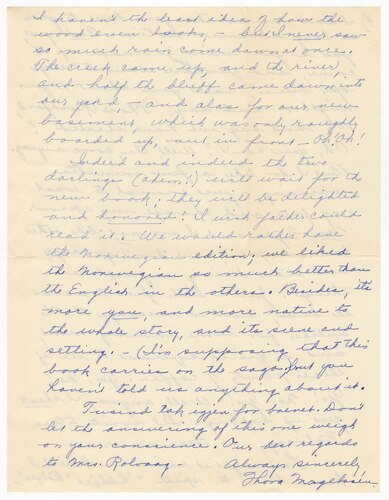 I haven't the least idea of how the
wood even looks, - but I never saw
so much rain come down at once.
The creek came up, and the river,
and half the bluff came down into
our yard, - and alas for our new
basement, which was only roughly
boarded up, out in front - Oh, Oh!
Indeed and indeed the two
darlings (ahem!) will wait for the
new book; they will be delighted
and honored! I wish father could
read it. We would rather have
the Norwegian edition; we liked
the Norwegian so much better than
the English in the others. Besides, it's
more you, and more native to
the whole story, and its scene and
setting. - (I'm supposing that this
book carries on the saga, but you
haven't told us anything about it.
Tusind Tak igjen for brevet. Don't
let the answering of this one weigh
on your conscience. Our best regards
to Mrs. Rolvaag -
Always sincerely
Thora